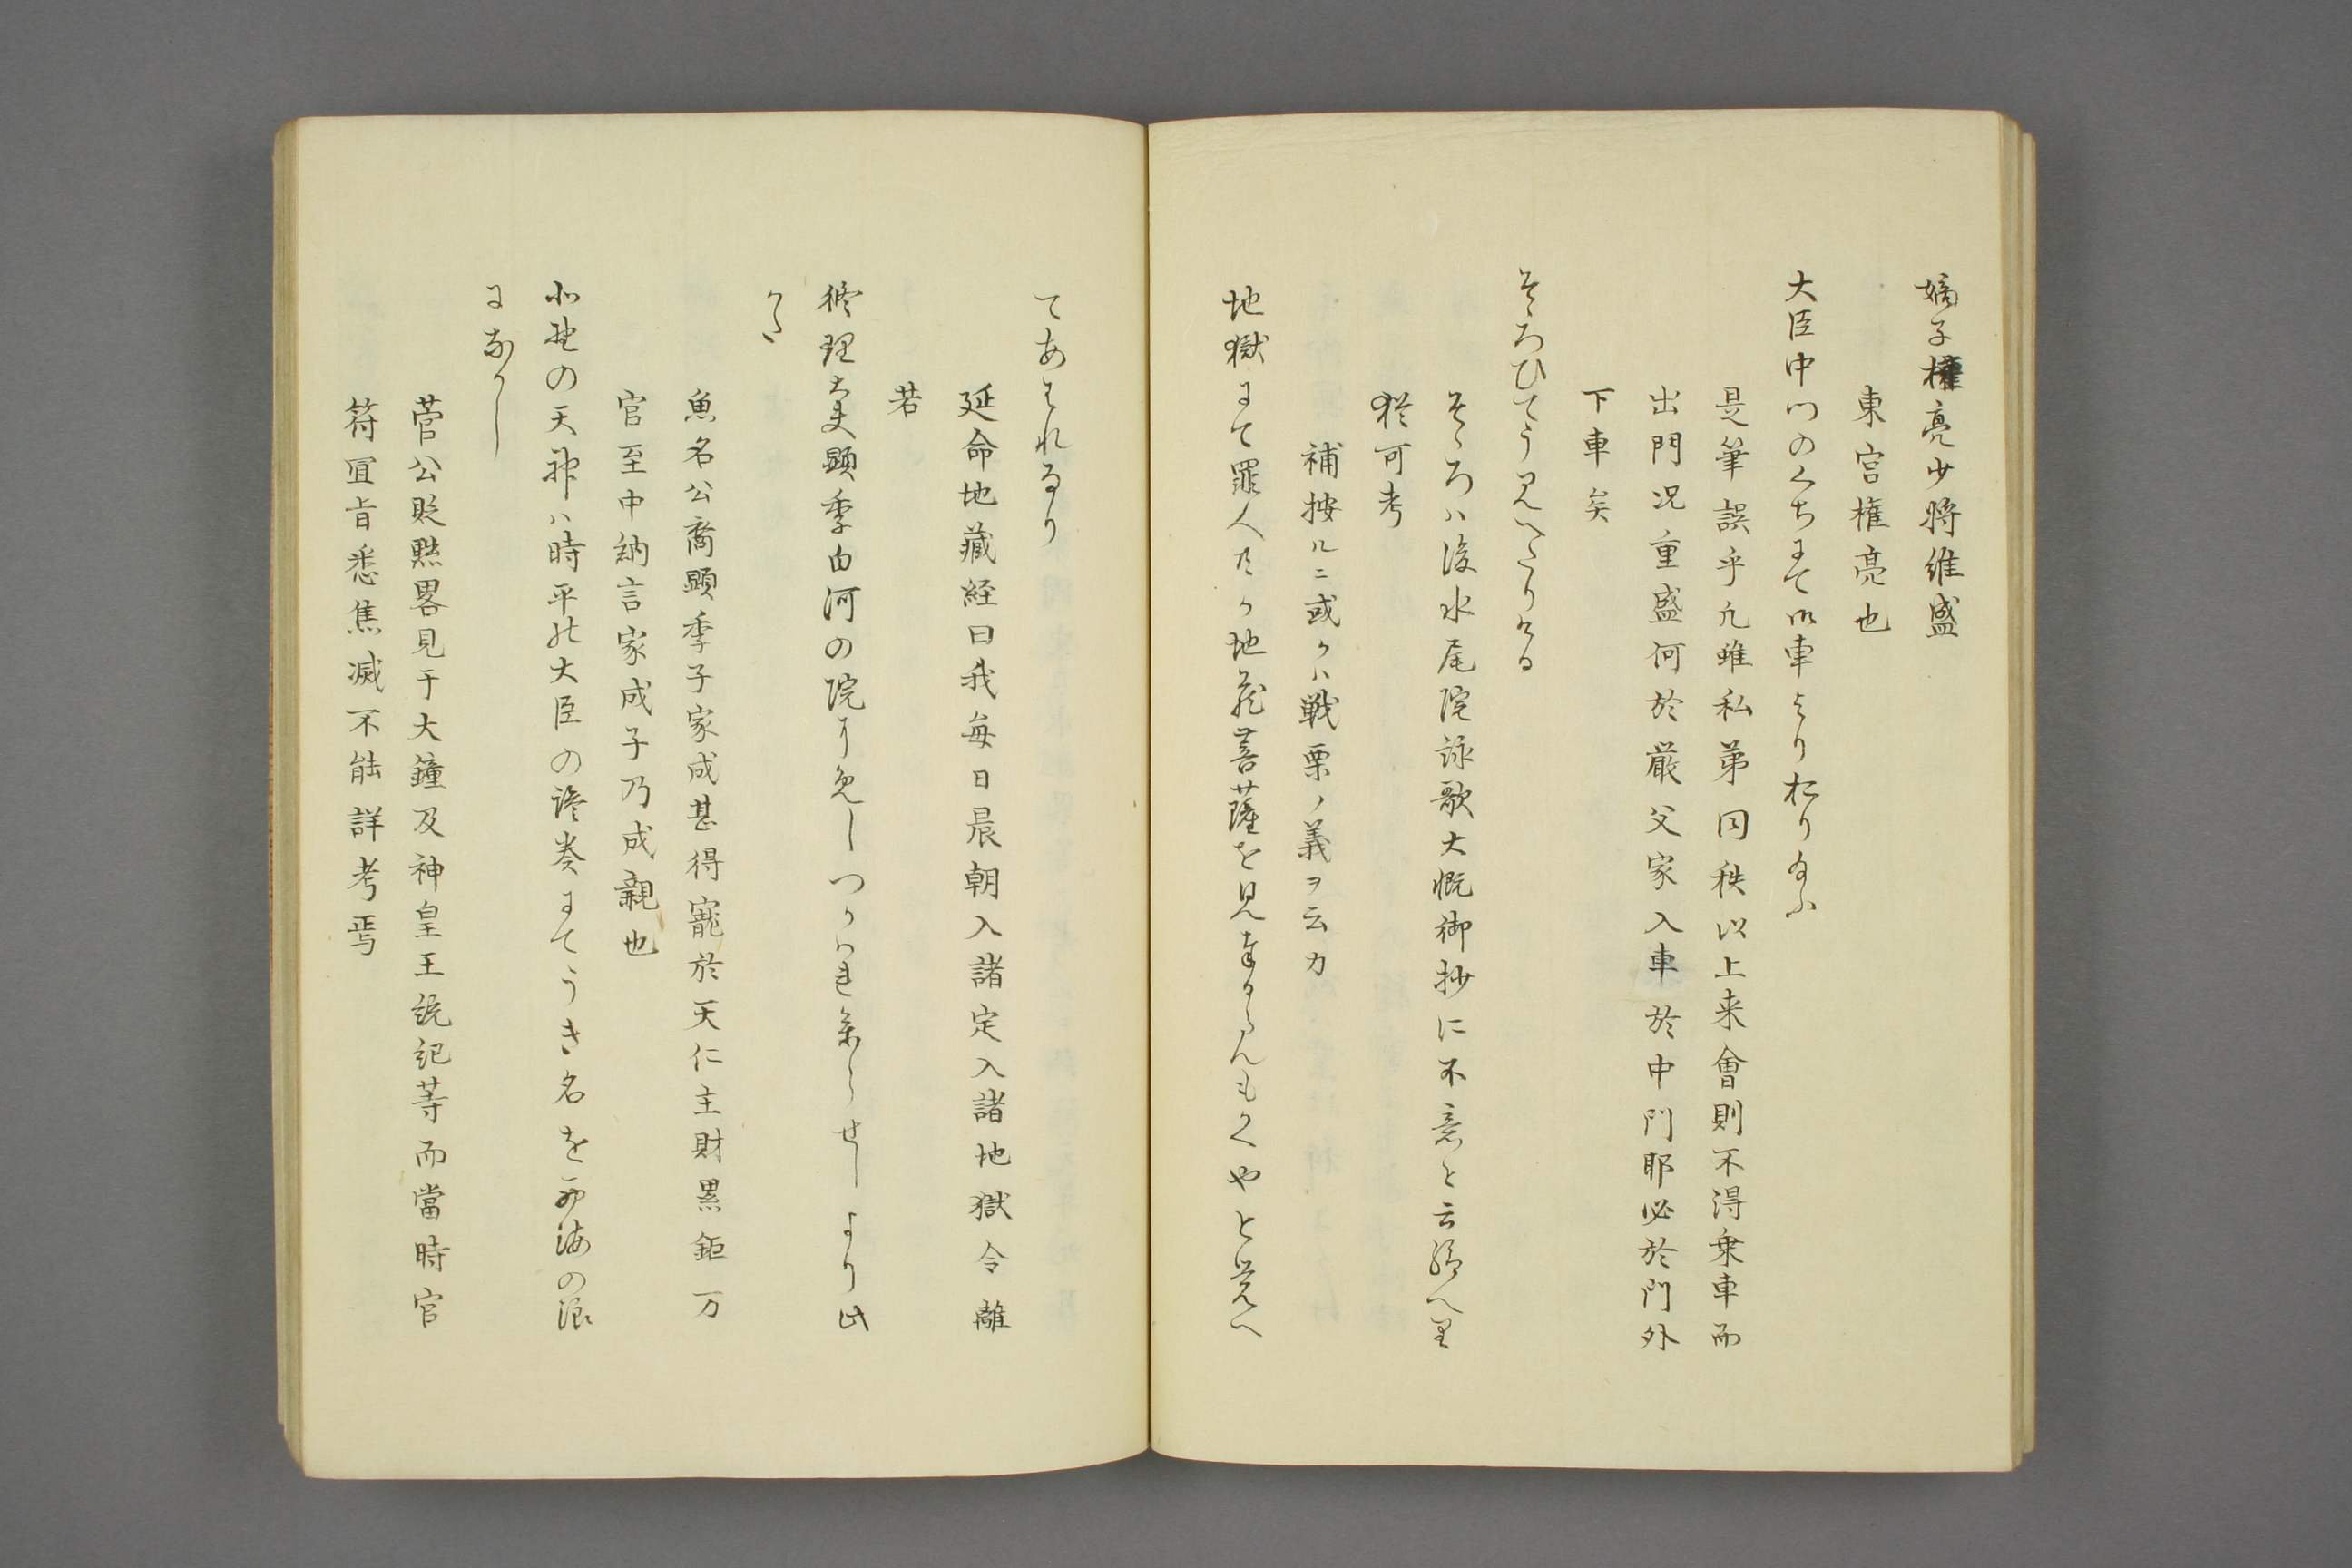 嫡子權亮少将維盛
東宮権亮也
大臣中門のくちにて御車よりおり給ふ
是筆誤乎凡雖私第同秩以上来會則不得乗車而
出門况重盛何於厳父家入車於中門耶必於門外
下車矣
そゝろひてう見へたりける
そゝろハ後水尾院詠歌大概御抄に不意と云給へ里
猶可考
補按ルニ或クハ戦栗ノ義ヲ云カ
地獄にて罪人共か地蔵菩薩を見奉るらんもかくやと覚へ
てあはれなり
延命地藏経曰我毎日晨朝入諸定入諸地獄令離
苦
修理大夫顕季白河の院に免しつかハれ参らせしより此
かた
魚名公裔顕季子家成甚得寵於天仁主財累鉅万
官至中納言家成子乃成親也
北野の天神ハ時平の大臣の讒奏にてうき名を西海の浪
になかし
菅公貶黙畧見于大鏡及神皇正統記等而當時官
符宣旨悉焦滅不能詳考焉